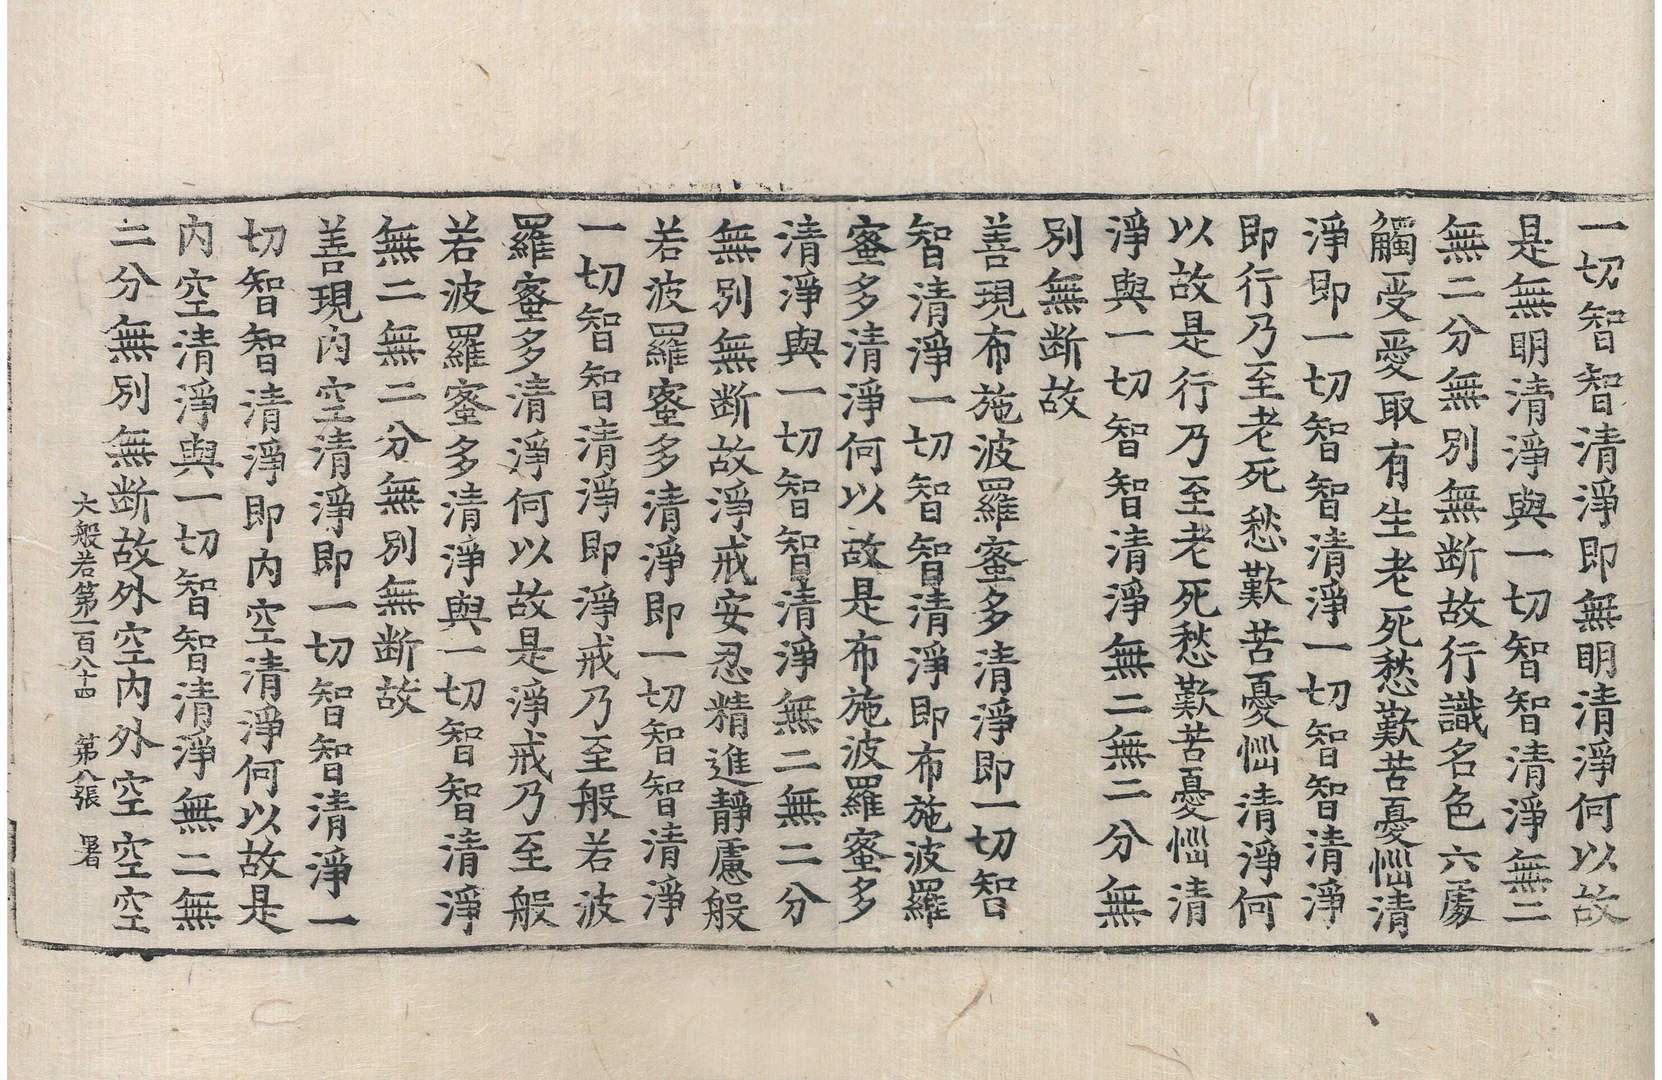 一切智智清淨即無明清淨何以故
是無明清淨與一切智智清淨無二
無二分無別無断故行識名色六處
觸受愛取有生老死愁歎苦憂惱清
淨即一切智智清淨一切智智清淨
即行乃至老死愁歎苦憂惱清淨何
以故是行乃至老死愁歎苦憂惱清
淨與一切智智清淨無二無二分無
別無断故
善現布施波羅蜜多清淨即一切智
智清淨一切智智清淨即布施波羅
蜜多清淨何以故是布施波羅蜜多
清淨與一切智智清淨無二無二分
無別無断故淨戒安忍精進靜慮般
若波羅蜜多清淨即一切智智清淨
一切智智清淨即淨戒乃至般若波
羅蜜多清淨何以故是淨戒乃至般
若波羅蜜多清淨與一切智智清淨
無二無二分無別無断故
善現內空清淨即一切智智清淨一
切智智清淨即內空清淨何以故是
內空清淨與一切智智清淨無二無
二分無別無断故外空內外空空空
大般若第一百八十四 第八張 署